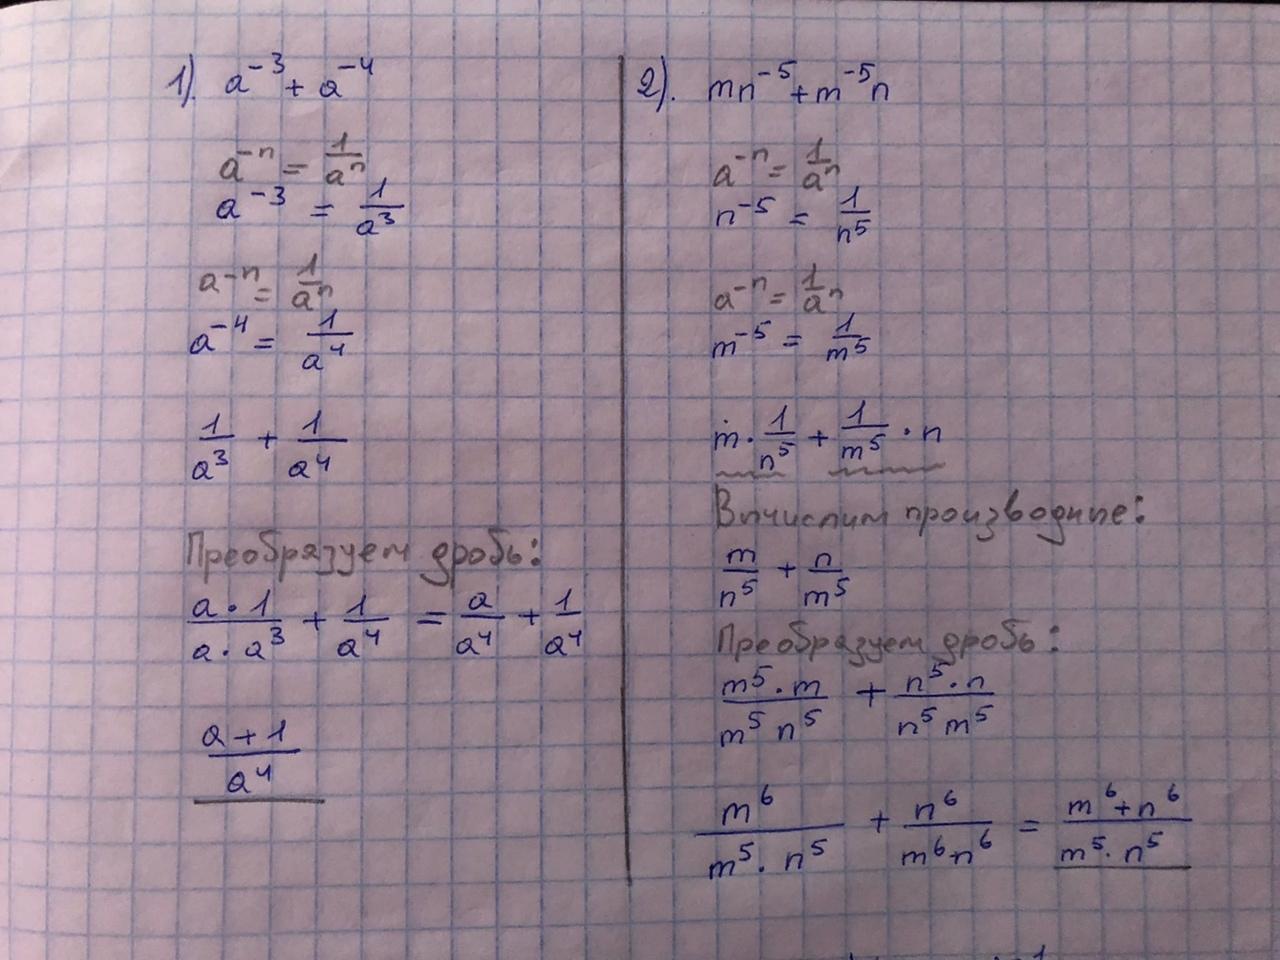 1). a⁻³ + a⁻⁴
a⁻ⁿ = 1/aⁿ
a⁻³ = 1/a³
a⁻ⁿ = 1/aⁿ
a⁻⁴ = 1/a⁴
1/a³ + 1/a⁴
Преобразуем дробь:
a·1/a·a³ + 1/a⁴ = a/a⁴ + 1/a⁴
a+1/a⁴
2). mn⁻⁵ + m⁻⁵n
a⁻ⁿ = 1/aⁿ
n⁻⁵ = 1/n⁵
a⁻ⁿ = 1/aⁿ
m⁻⁵ = 1/m⁵
m · 1/n⁵ + 1/m⁵ · n
Вычислим производные:
m/n⁵ + n/m⁵
Преобразуем дробь:
m⁵·m/m⁵ n⁵ + n⁵·n/n⁵ m⁵
m⁶/m⁵·n⁵ + n⁶/m⁶·n⁶ = m⁶+n⁶/m⁵·n⁵